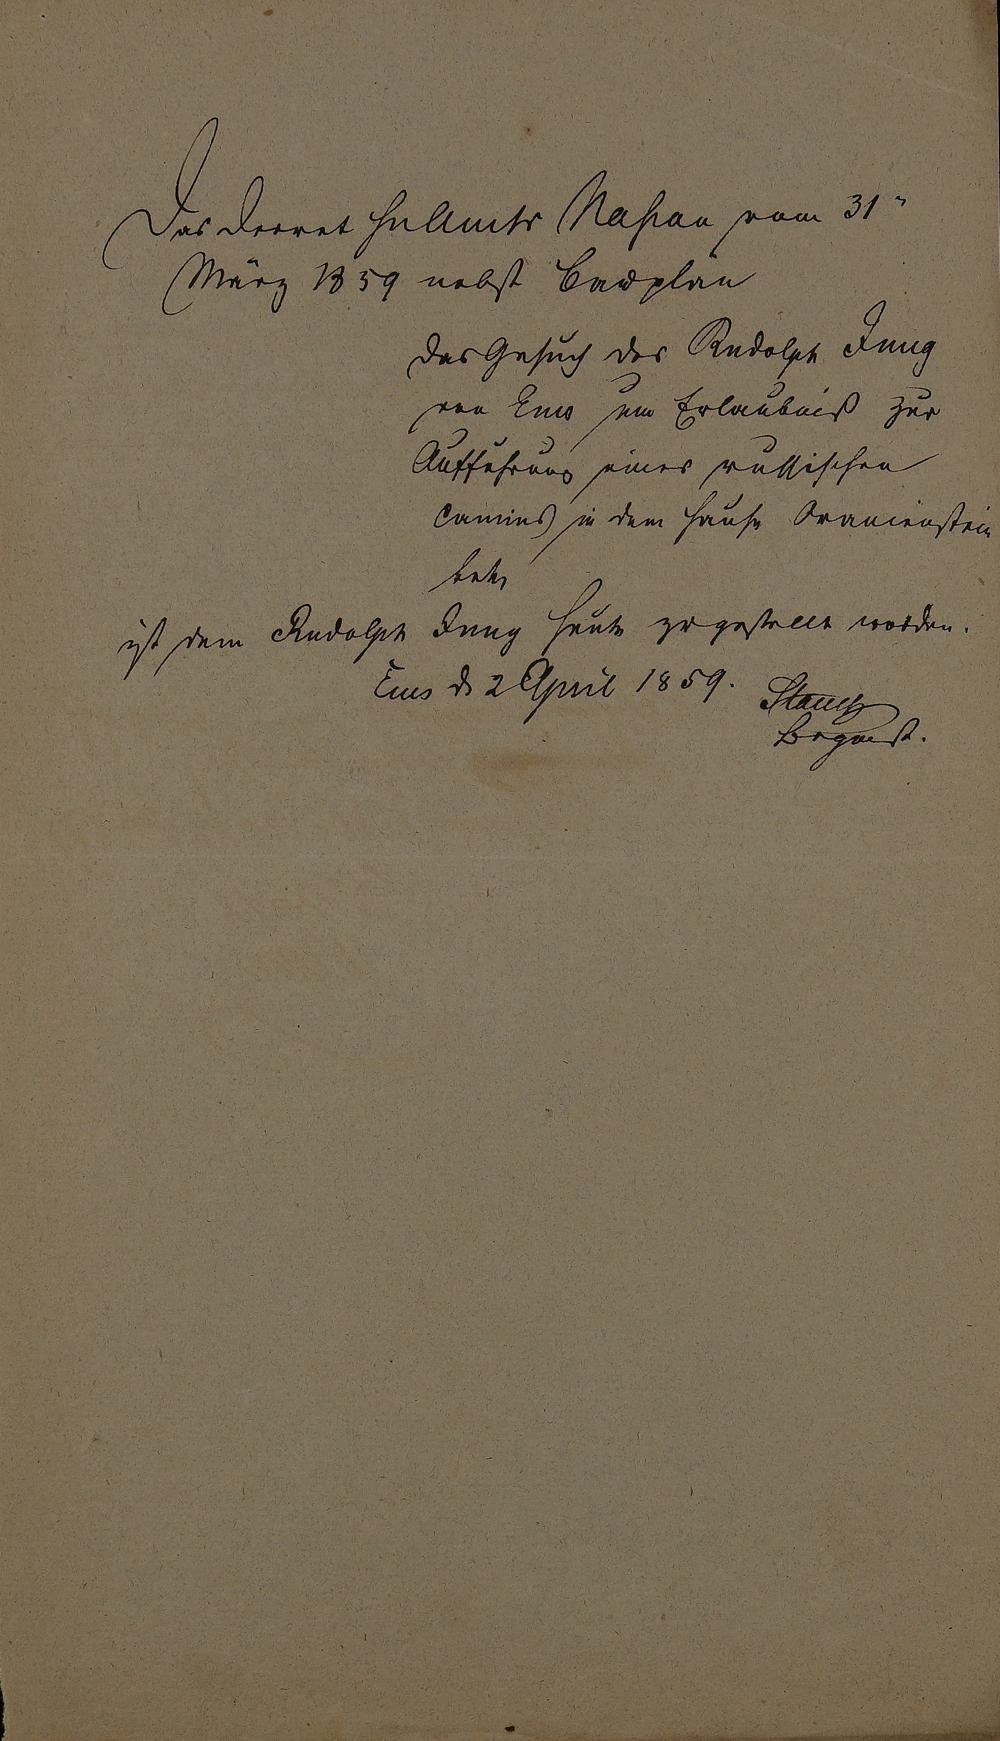 Das Decret HzlAmts Nassau vom 31"
März 1859 nebst Bauplan
das Gesuch des Rudolph Jung
von Ems um Erlaubniß zur
Aufführung eines russischen
Camins in dem Hause Oranienstein
betr,
ist dem Rudolph Jung heute zugestellt worden.
Ems d 2 April 1859.
Brgmst.